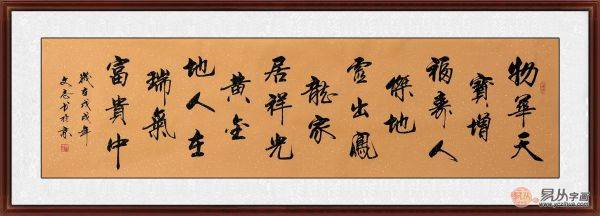 物華天
寶增
福壽人
傑地
靈出鳳
龍家
居祥光
黃金
地人在
瑞氣
富貴中
歲在戊戌年
文志書於京
易从字画
www.yczihua.com